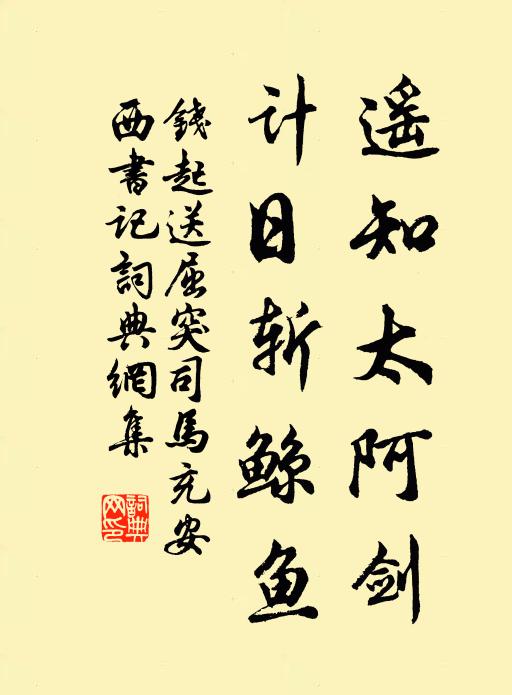 遥知太阿剑
计日斩鲸鱼
錢起送屈突司馬充安
西書記詞典網集
詞典网印